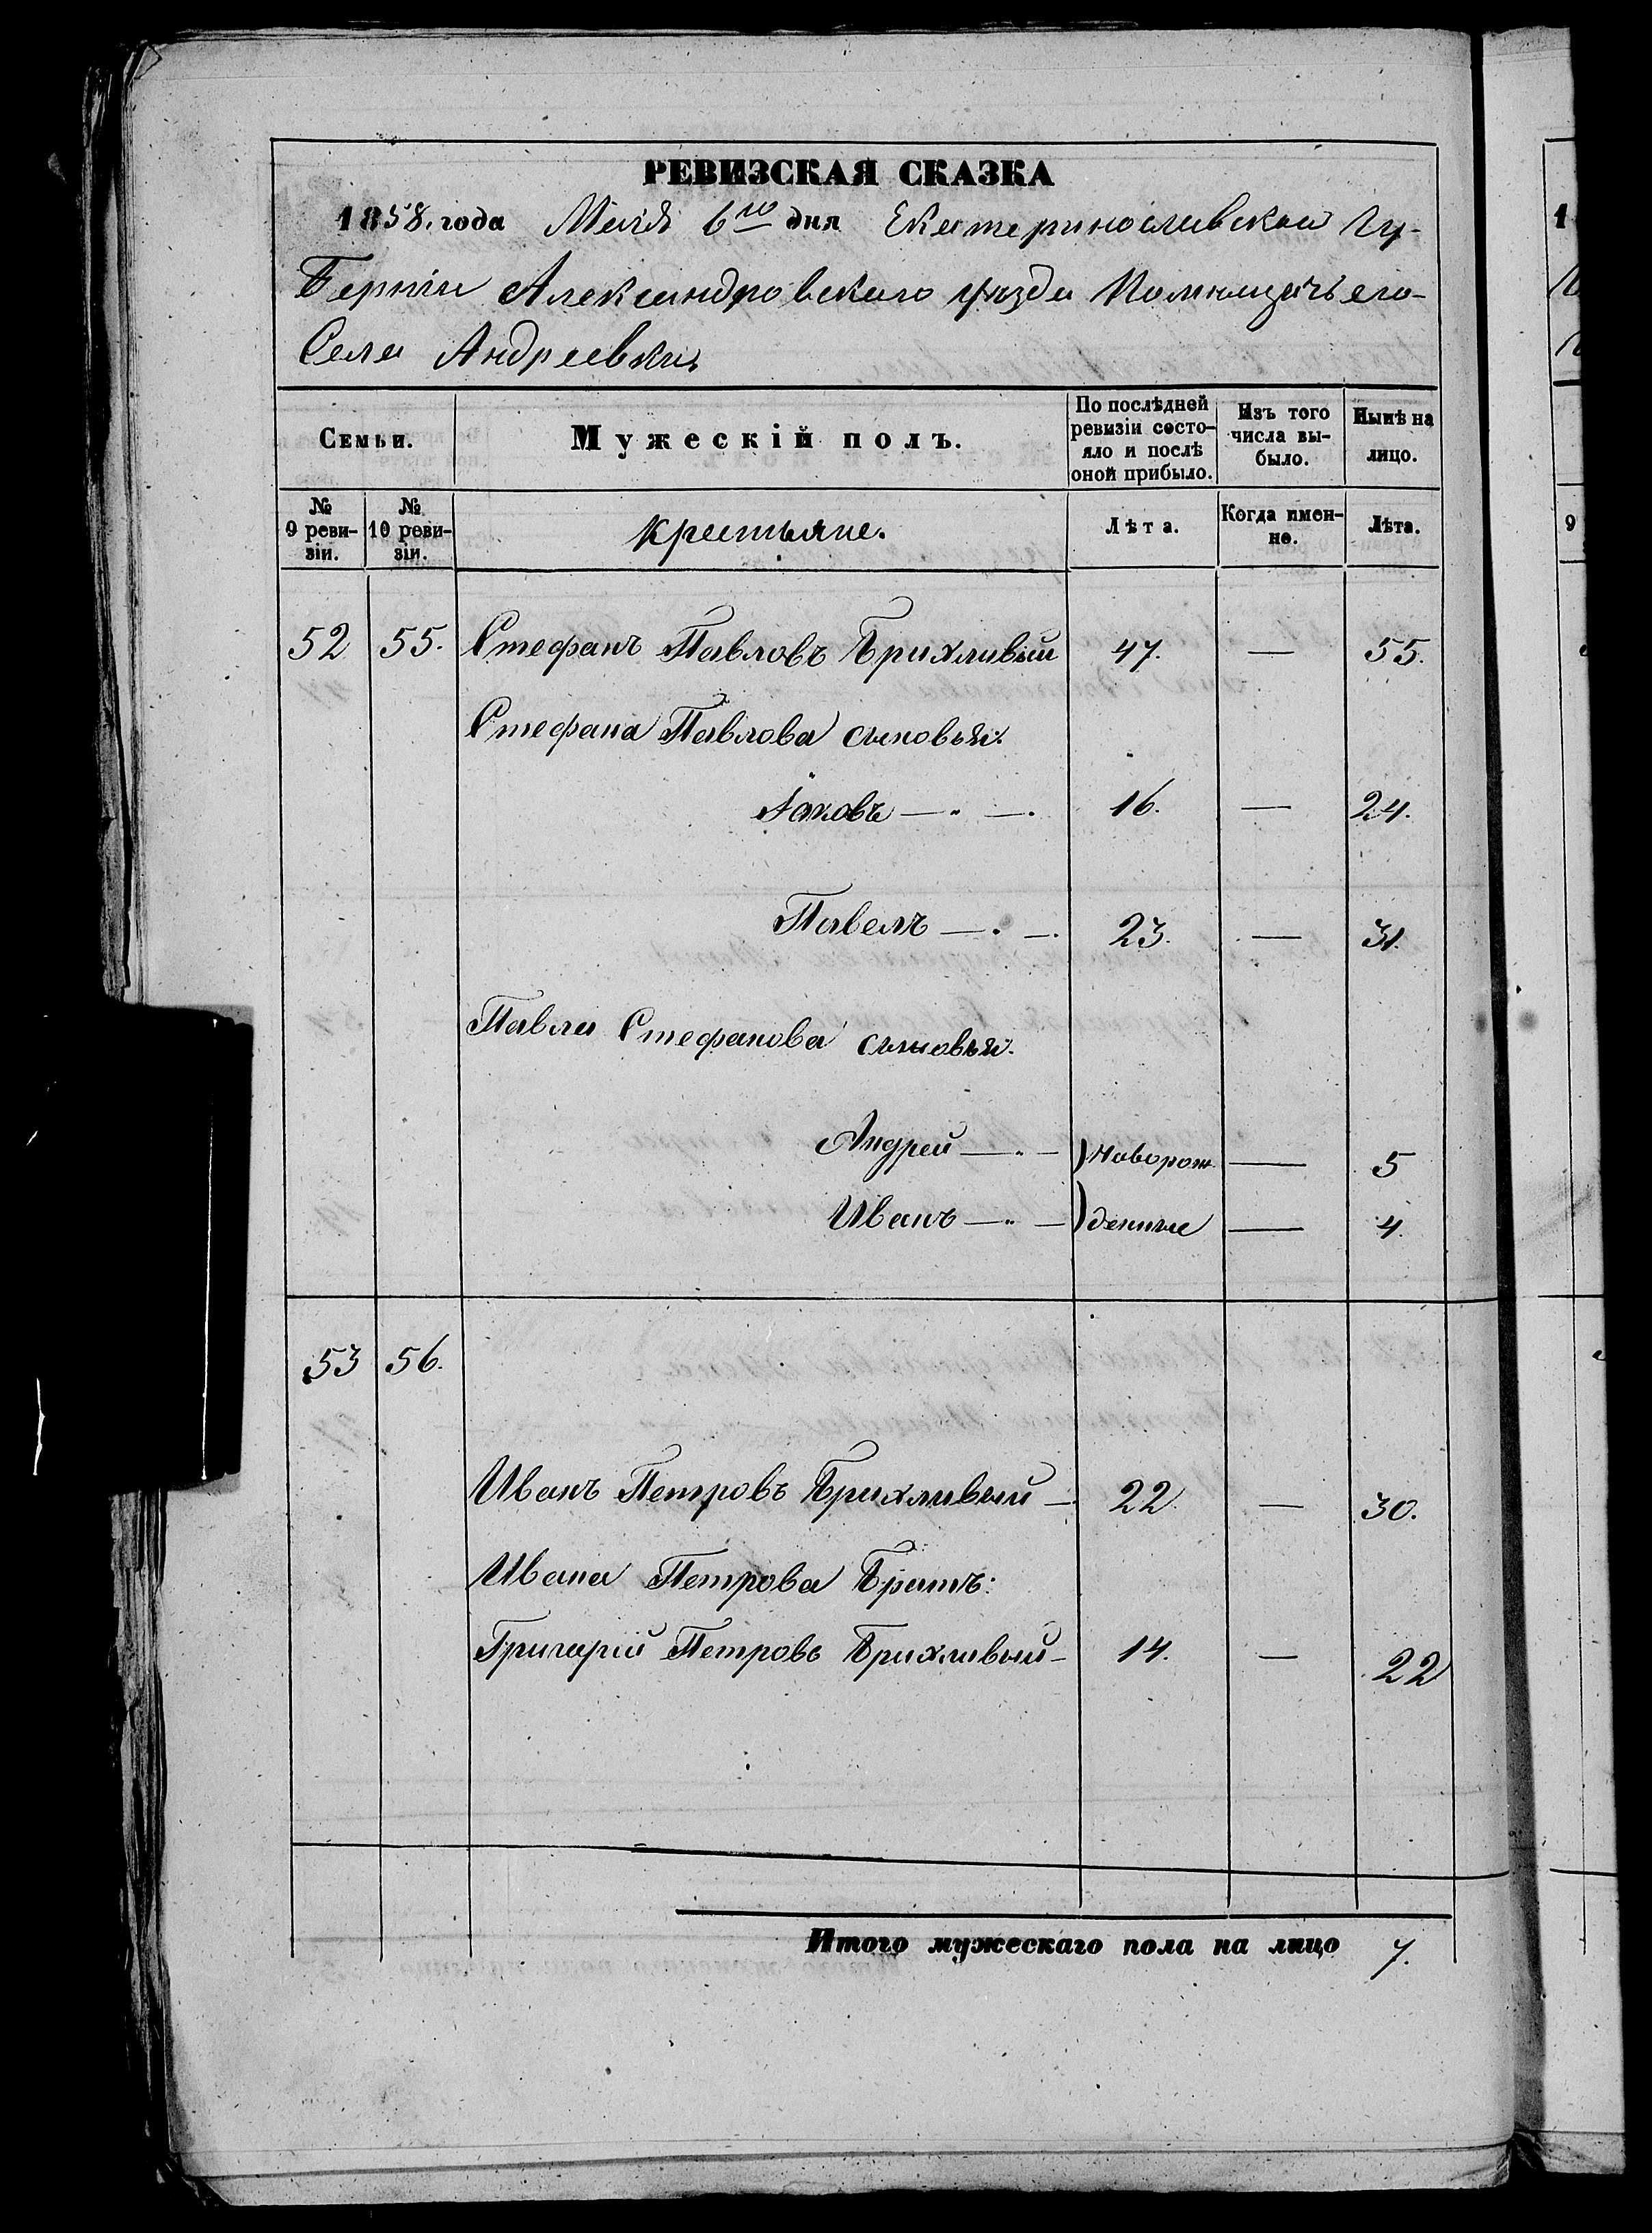 РЕВИЗСКАЯ СКАЗКА
1858. года Маія 6го дня Екатеринославской Гу-
берніи Александровскаго уѣзда Помѣщичьего
Села Андреевки
Семьи. Мужескій полъ. По послѣдней ревизіи состо-яло и послѣ оной прибыло. Изъ того числа вы-было. Нынѣ на лицо.
№ 9 реви-зіи. № 10 реви-зіи. Крестьяне. Лѣта. Когда имен-но. Лѣта.
52 55. Стефанъ Павловъ Брихливый 47. — 55.
Стефана Павлова сыновья:
Іаковъ — " — . 16. — 24.
Павелъ — . — . 23. — 31.
Павла Стефанова сыновья.
Андрей — " — ) Новорож — 5
Иванъ — " — ) денные — 4.
53 56.
Иванъ Петровъ Брихливый — 22 — 30.
Ивана Петрова Братъ:
Григорій Петровъ Брихливый — 14. — 22
Итого мужескаго пола на лицо 7.
1
9